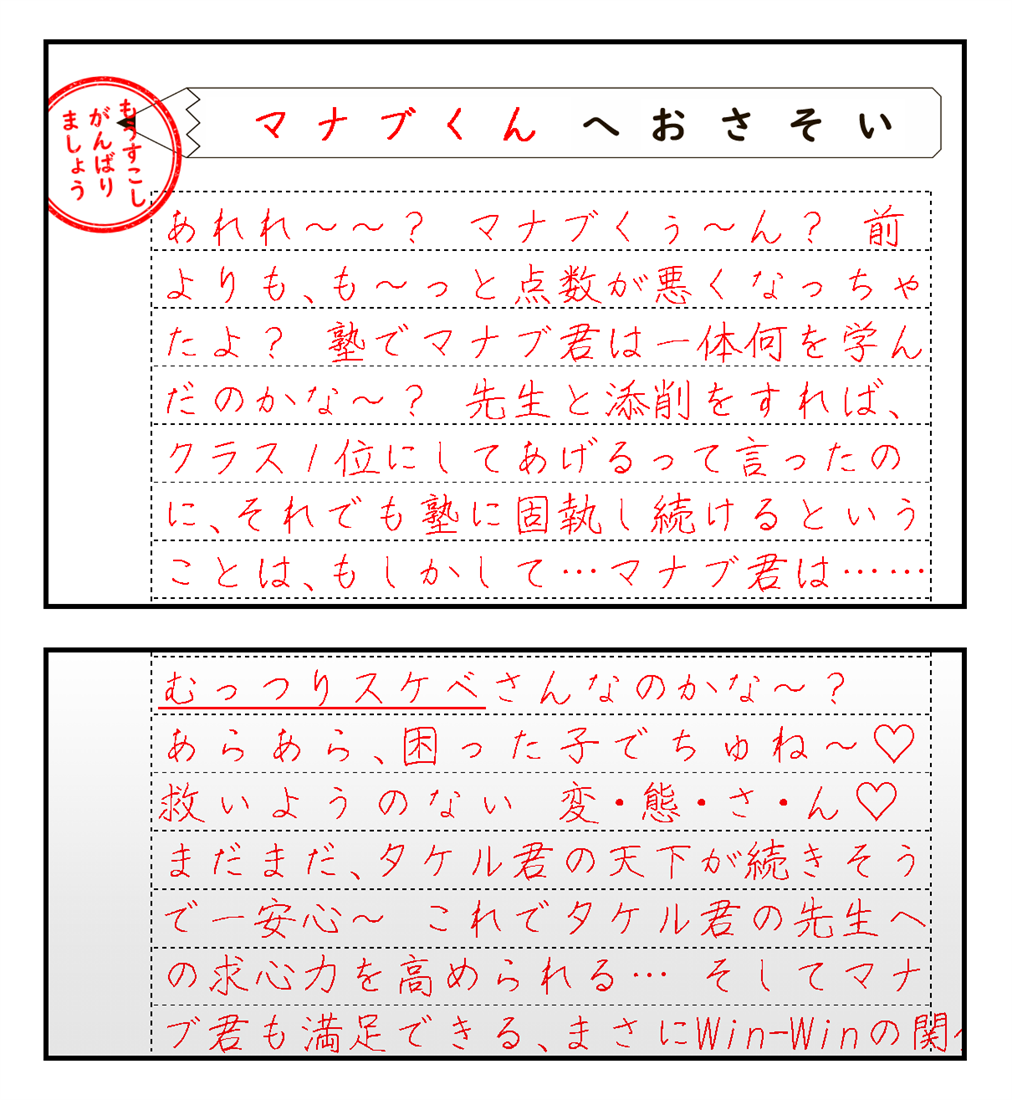 もうすこし
がんばり
ましょう
マナブくんへおさそい
あれれ～～？ マナブくぅ～ん？ 前
よりも、も～っと点数が悪くなっちゃ
たよ？ 塾でマナブ君は一体何を学ん
だのかな～？ 先生と添削をすれば、
クラス1位にしてあげるって言ったの
に、それでも塾に固執し続けるという
ことは、もしかして…マナブ君は……
むっつりスケベさんなのかな～？
あらあら、困った子でちゅね～♡
救いようのない 変・態・さ・ん♡
まだまだ、タケル君の天下が続きそう
で一安心～ これでタケル君の先生へ
の求心力を高められる… そしてマナ
ブ君も満足できる、まさにWin-Winの関